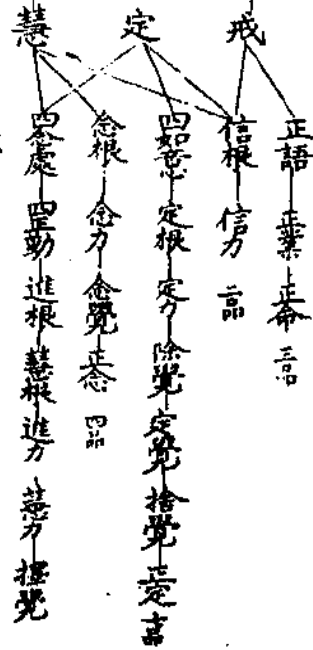 戒
定
慧
正語 正業 正命 三品
信根 信力 二品
四如意 定根 定力 除覺 定覺 捨覺 正定 十品
念根 念力 念覺 正念 四品
四念處 四正勤 進根 慧根 進力 慧力 擇覺